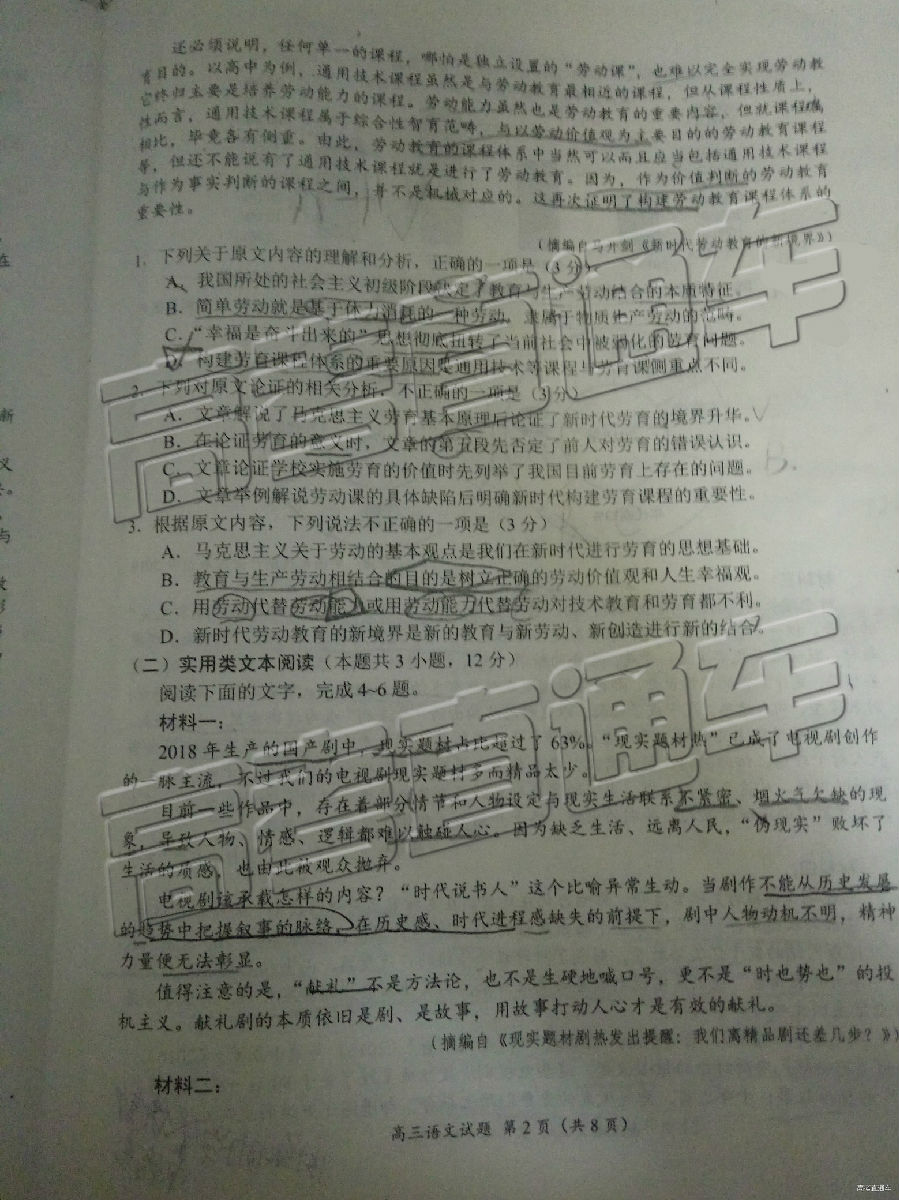 还必须说明，任何单一的课程，哪怕是独立设置的“劳动课”，也难以完全实现劳动教
育目的。以高中为例，通用技术课程虽然是与劳动教育最相近的课程，但从课程性质上，
它终归主要是培养劳动能力的课程。劳动能力虽然也是劳动教育的重要内容，但就课程属
性而言，通用技术课程属于综合性智育范畴，与以劳动价值观为主要目的的劳动教育课程
相比，毕竟各有侧重。由此，劳动教育的课程体系中当然可以而且应当包括通用技术课程
等，但还不能说有了通用技术课程就是进行了劳动教育。因为，作为价值判断的劳动教育
与作为事实判断的课程之间，并不是机械对应的。这再次证明了构建劳动教育课程体系的
重要性。
（摘编自马开剑《新时代劳动教育的新境界》）
1. 下列关于原文内容的理解和分析，正确的一项是（3分）
A. 我国所处的社会主义初级阶段决定了教育与生产劳动结合的本质特征。
B. 简单劳动就是基于体力消耗的一种劳动，隶属于物质生产劳动的范畴。
C. “幸福是奋斗出来的”思想彻底扭转了当前社会中被弱化的劳育问题。
D. 构建劳育课程体系的重要原因是通用技术等课程与劳育课侧重点不同。
2. 下列对原文论证的相关分析，不正确的一项是（3分）
A. 文章解说了马克思主义劳育基本原理后论证了新时代劳育的境界升华。
B. 在论证劳育的意义时，文章的第五段先否定了前人对劳育的错误认识。
C. 文章论证学校实施劳育的价值时先列举了我国目前劳育上存在的问题。
D. 文章举例解说劳动课的具体缺陷后明确新时代构建劳育课程的重要性。
3. 根据原文内容，下列说法不正确的一项是（3分）
A. 马克思主义关于劳动的基本观点是我们在新时代进行劳育的思想基础。
B. 教育与生产劳动相结合的目的是树立正确的劳动价值观和人生幸福观。
C. 用劳动代替劳动能力或用劳动能力代替劳动对技术教育和劳育都不利。
D. 新时代劳动教育的新境界是新的教育与新劳动、新创造进行新的结合。
（二）实用类文本阅读（本题共3小题，12分）
阅读下面的文字，完成4~6题。
材料一：
2018年生产的国产剧中，现实题材占比超过了63%。“现实题材热”已成了电视剧创作
的一脉主流，不过我们的电视剧现实题材多而精品太少。
目前一些作品中，存在着部分情节和人物设定与现实生活联系不紧密、烟火气欠缺的现
象，导致人物、情感、逻辑都难以触碰人心。因为缺乏生活、远离人民，“伪现实”败坏了
生活的质感，也由此被观众抛弃。
电视剧该承载怎样的内容？“时代说书人”这个比喻异常生动。当剧作不能从历史发展
的趋势中把握叙事的脉络，在历史感、时代进程感缺失的前提下，剧中人物动机不明，精神
力量便无法彰显。
值得注意的是，“献礼”不是方法论，也不是生硬地喊口号，更不是“时也势也”的投
机主义。献礼剧的本质依旧是剧、是故事，用故事打动人心才是有效的献礼。
（摘编自《现实题材剧热发出提醒：我们离精品剧还差几步？》）
材料二：
高三语文试题 第2页（共8页）
高考直通车
高考直通车
高考直通车